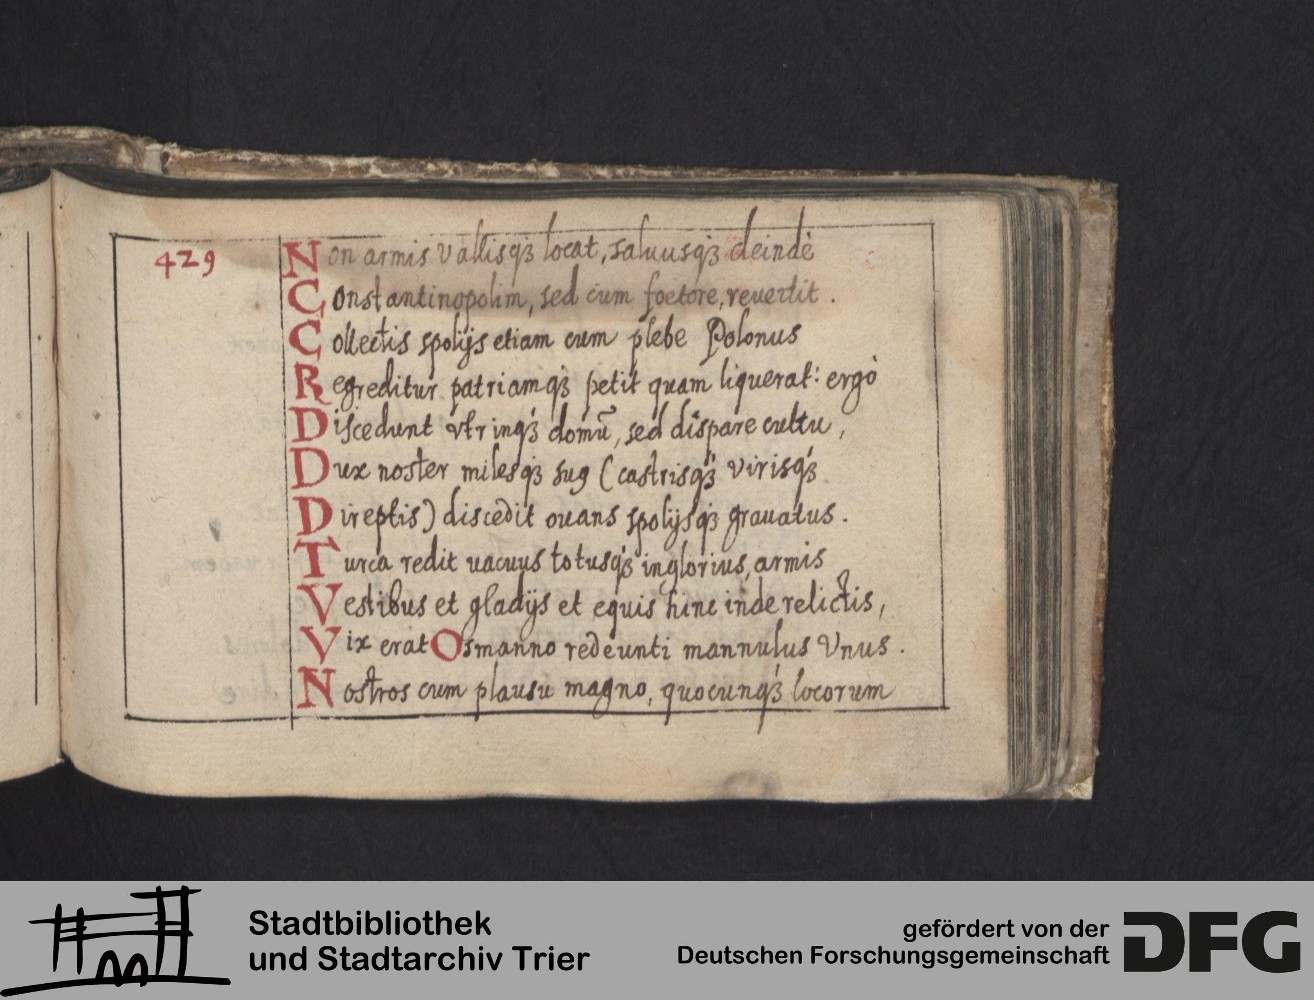 429
Non armis Vallisqꝫ locat, saluusqꝫ deindè
Constantinopolim, sed cum foetore, reuertit.
Collectis spolijs etiam cum plebe Polonus
Regreditur patriamqꝫ petit quam liquerat: ergò
Discedunt vtrinqꝫ domū, sed dispare cultu,
Dux noster milesqꝫ suꝰ (castrisqꝫ virisqꝫ
Direptis) discedit ouans spolijsqꝫ grauatus.
Turca redit uacuus totusqꝫ inglorius, armis
Vestibus et gladijs et equis hinc inde relictis,
Vix erat Osmanno redeunti mannulus Vnus.
Nostros cum plausu magno, quocunqꝫ locorum
Stadtbibliothek
und Stadtarchiv Trier
gefördert von der
Deutschen Forschungsgemeinschaft
DFG